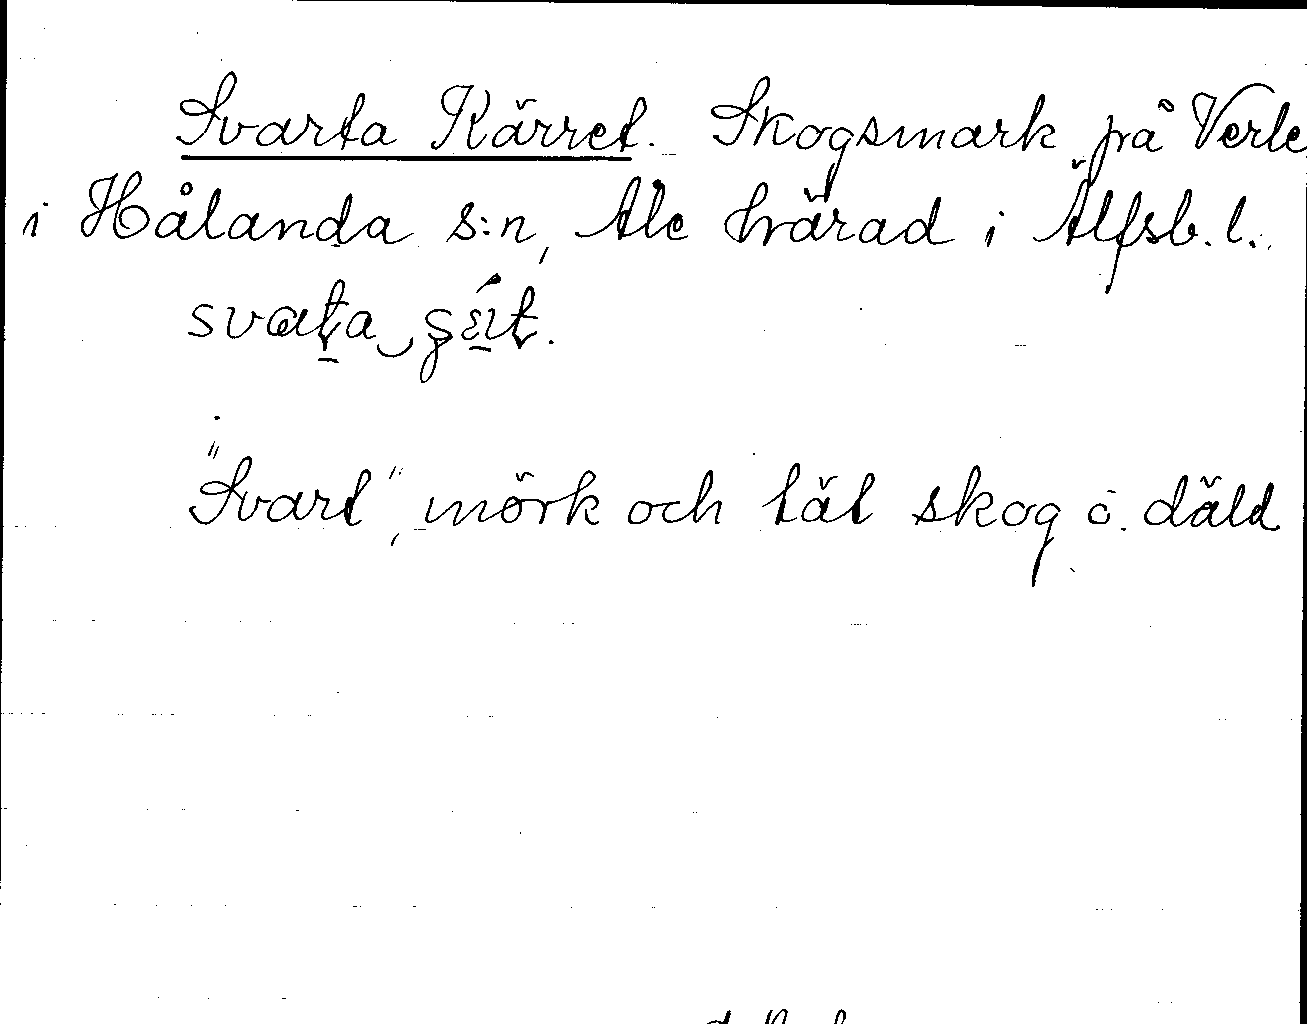 Svarta Kärret. Skogsmark på Verle
i Hålanda s:n, Ale härad i Älfsb. l.
svaʈa
"Svart", mörk och tät skog o. däld